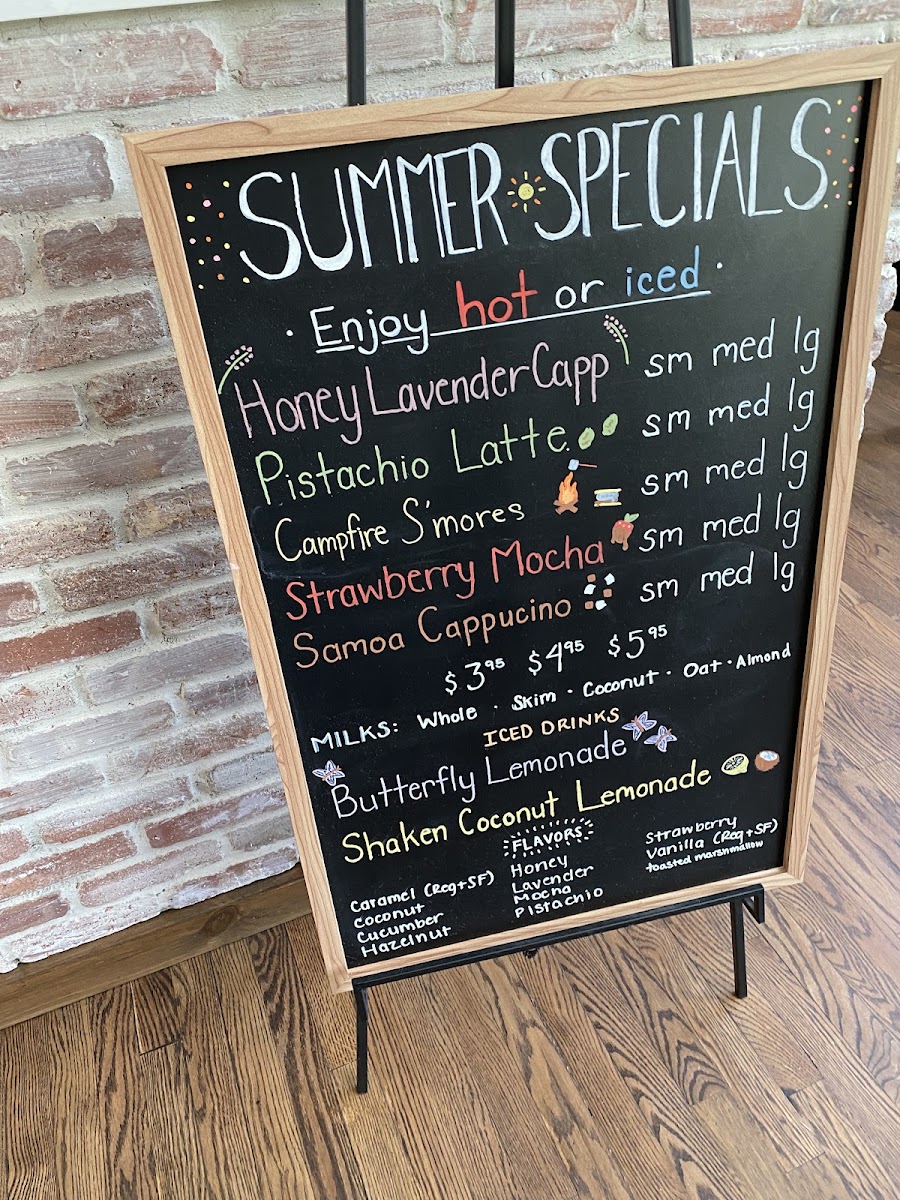 SUMMER SPECIALS
· Enjoy hot or iced ·
Honey Lavender Capp sm med lg
Pistachio Latte sm med lg
Campfire S'mores sm med lg
Strawberry Mocha sm med lg
Samoa Cappucino sm med lg
$3.95 $4.95 $5.95
MILKS: Whole · Skim · Coconut · Oat · Almond
ICED DRINKS
Butterfly Lemonade
Shaken Coconut Lemonade
FLAVORS
Caramel (Reg+SF)
coconut
Cucumber
Hazelnut
Honey
Lavender
Mocha
Pistachio
Strawberry
Vanilla (Reg+SF)
toasted marshmallow